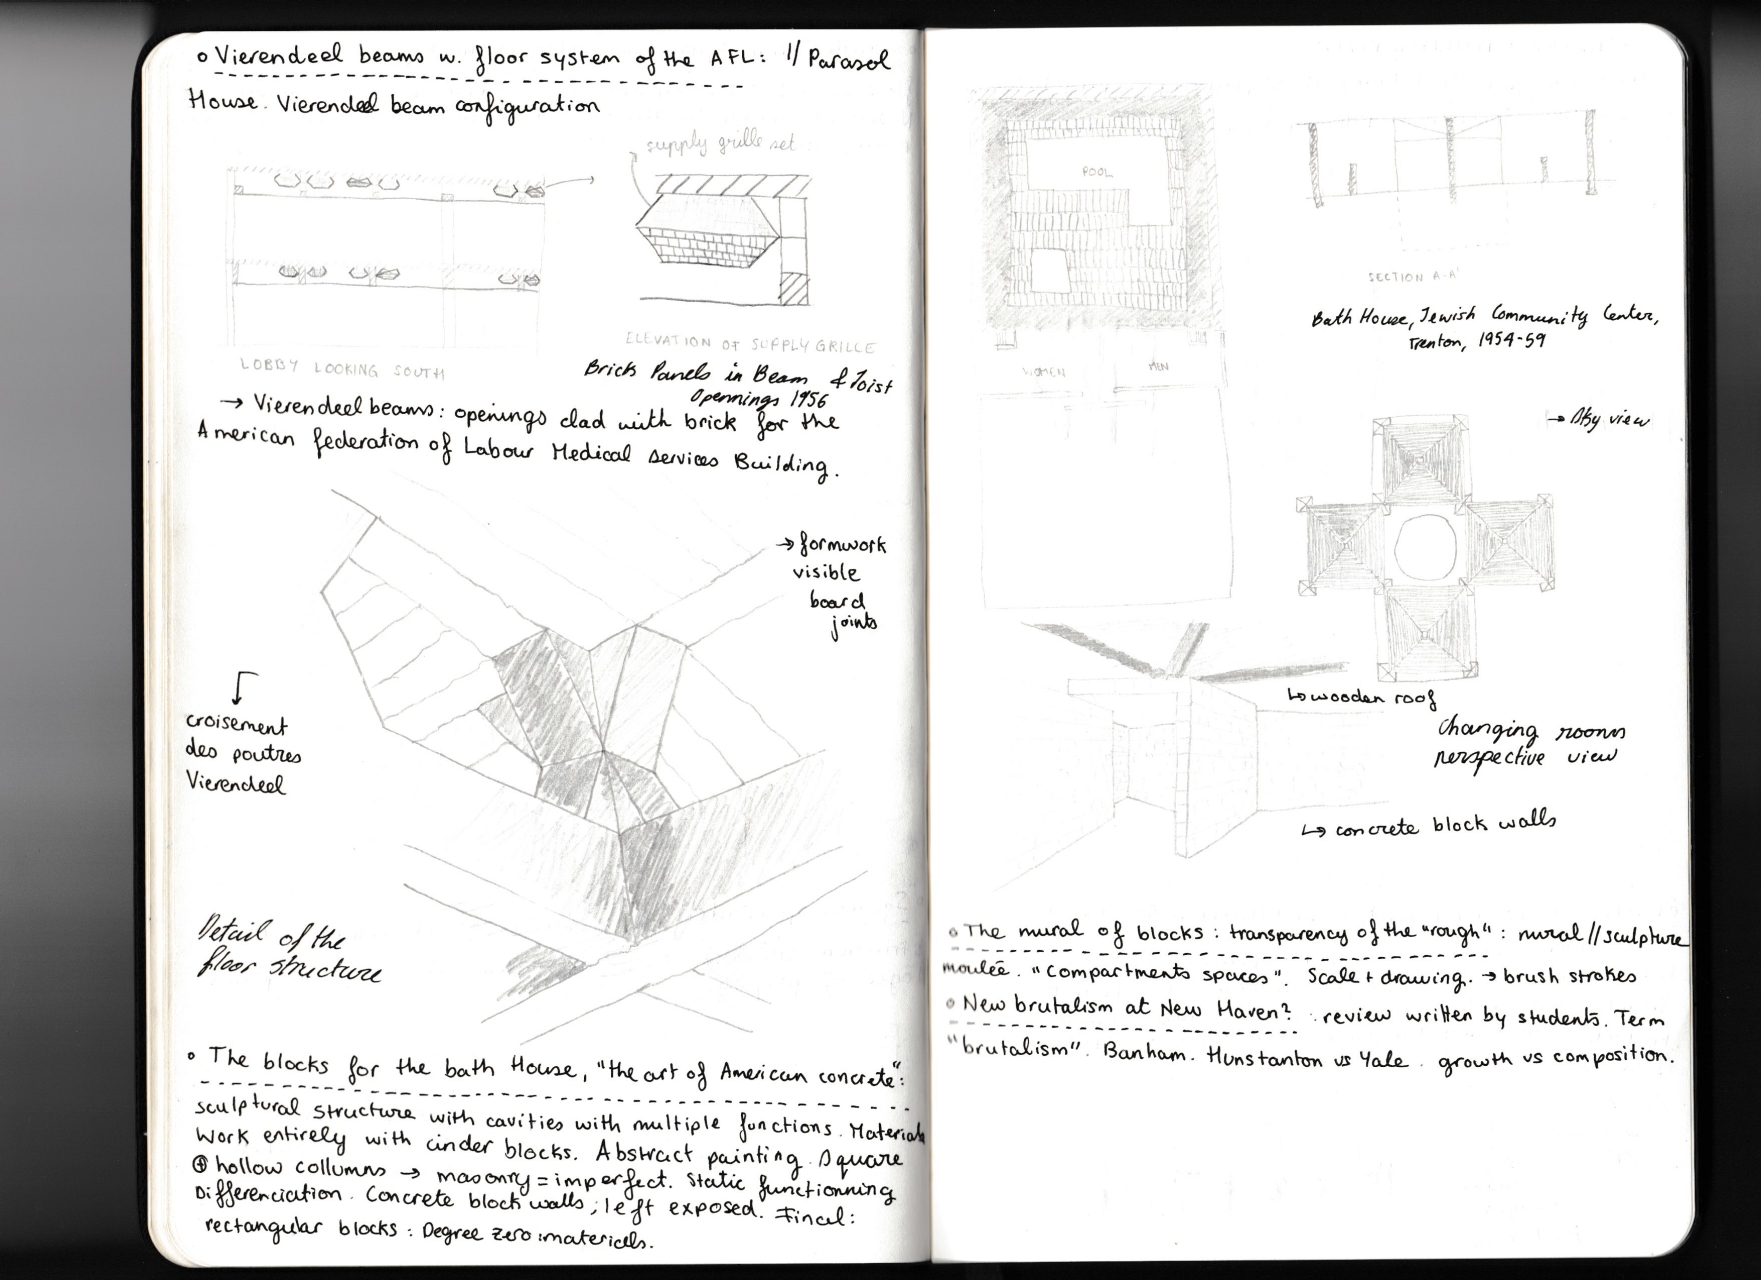 o Vierendeel beams w. floor system of the AFL: // Parasol
House. Vierendeel beam configuration
supply grille set
LOBBY LOOKING SOUTH
ELEVATION OF SUPPLY GRILLE
Brick Panels in Beam & Joist
Opennings 1956
→ Vierendeel beams: openings clad with brick for the
American federation of Labour Medical services Building.
→ formwork
visible
board
joints
croisement
des poutres
Vierendeel
Detail of the
floor structure
o The blocks for the bath House, "the art of American concrete":
sculptural structure with cavities with multiple functions. Materials
Work entirely with cinder blocks. Abstract painting. Square
⊕ hollow collumns → masonry = imperfect. Static functionning
Differenciation. Concrete block walls; left exposed. Final:
rectangular blocks: Degree zero: materials.
POOL
WOMEN
MEN
SECTION A-A'
Bath House, Jewish Community Center,
Trenton, 1954-59
→ Sky view
↳ wooden roof
Changing rooms
perspective view
↳ concrete block walls
o The mural of blocks: transparency of the "rough": mural // sculpture
moulée. "Compartments spaces". Scale + drawing. → brush strokes
o New brutalism at New Haven? : review written by students. Term
"brutalism". Banham. Hunstanton vs Yale. growth vs composition.